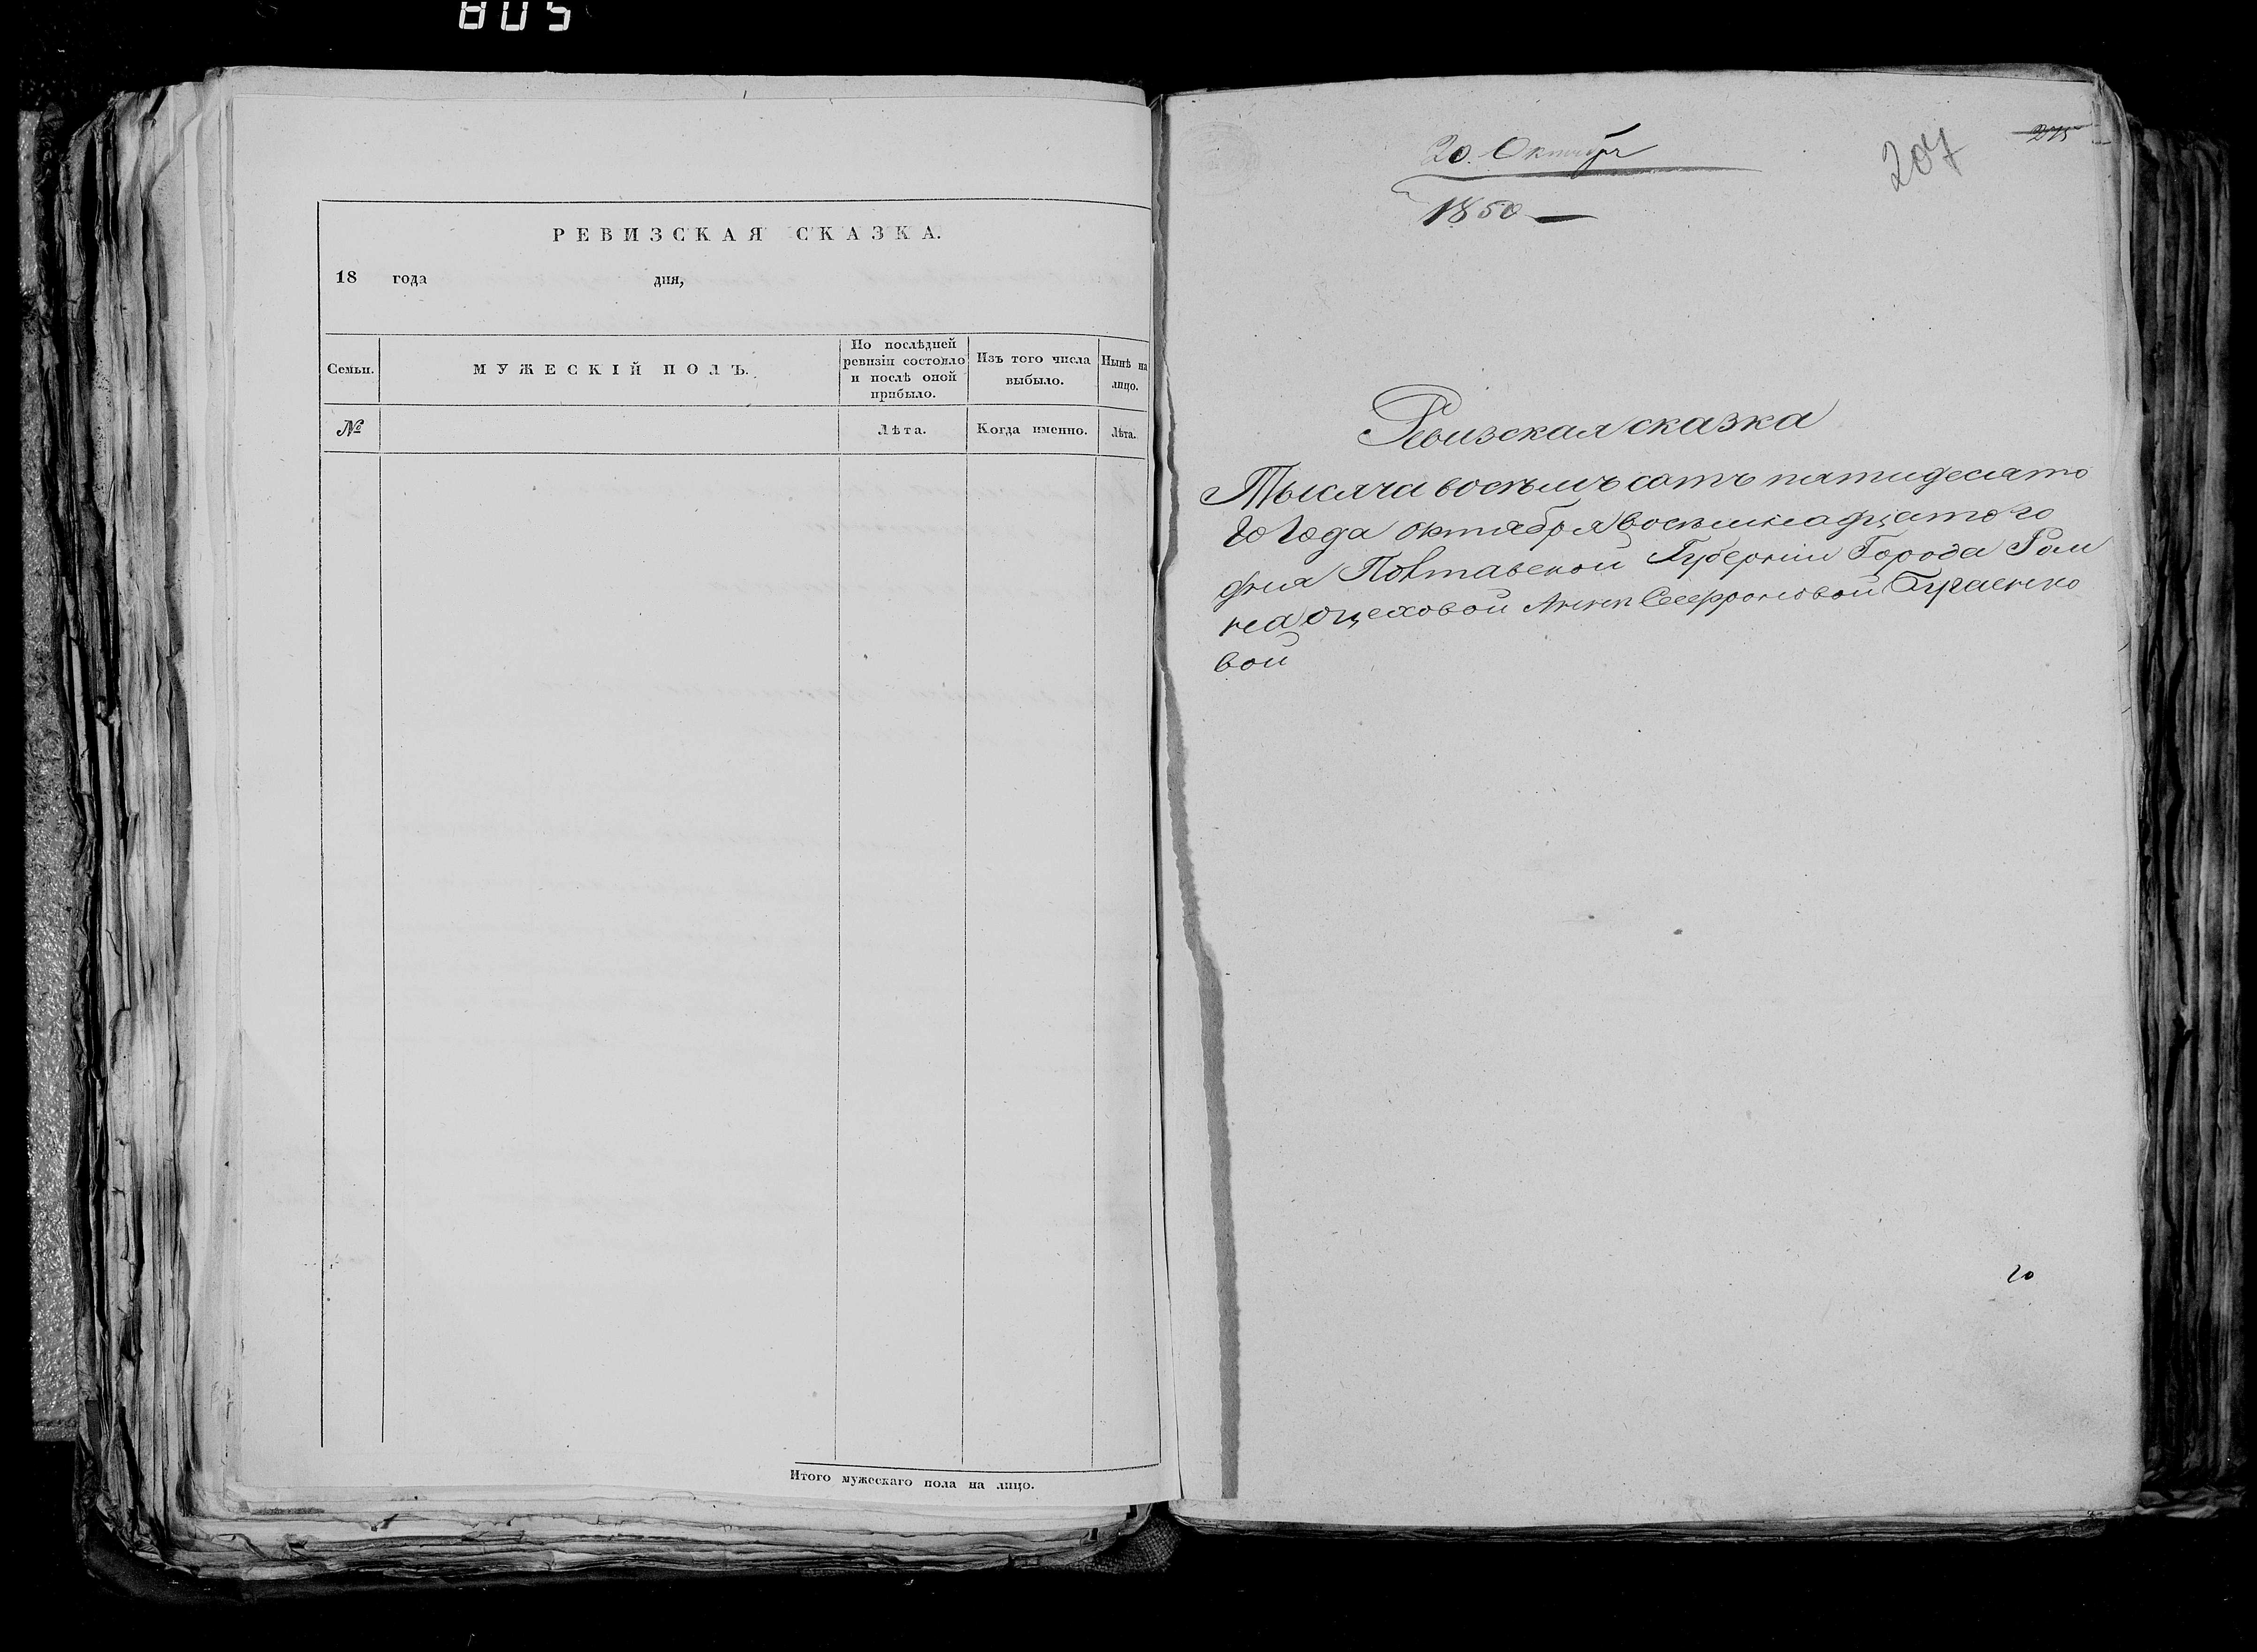 805
РЕВИЗСКАЯ СКАЗКА.
18 года дня,
Семьи.
МУЖЕСКІЙ ПОЛЪ.
По послѣдней ревизіи состояло и послѣ оной прибыло.
Изъ того числа выбыло.
Нынѣ на лицо.
№
Лѣта.
Когда именно.
Лѣта.
Итого мужескаго пола на лицо.
20. Октября
1850
207
275
Ревизская сказка
Тысяча восемъ сотъ пятидесято
го года октября восемнадцатого
дня Полтавской Губерніи Города Ром
на о цеховой Анны Сафроновой Бугаенко
вой